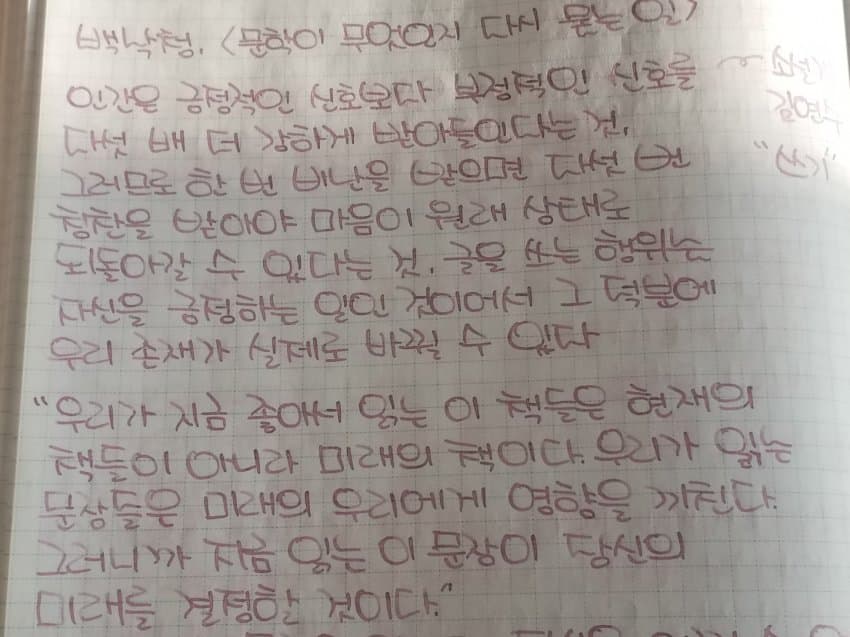 백낙청. <문학이 무엇인지 다시 묻는 일>
인간은 긍정적인 신호보다 부정적인 신호를
다섯 배 더 강하게 받아들인다는 것.
그러므로 한 번 비난을 받으면 다섯 번
칭찬을 받아야 마음이 원래 상태로
되돌아갈 수 있다는 것. 글을 쓰는 행위는
자신을 긍정하는 일인 것이어서 그 덕분에
우리 존재가 실제로 바뀔 수 있다
소설가
김연수
"쓰기"
"우리가 지금 좋아서 읽는 이 책들은 현재의
책들이 아니라 미래의 책이다. 우리가 읽는
문장들은 미래의 우리에게 영향을 끼친다.
그러니까 지금 읽는 이 문장이 당신의
미래를 결정할 것이다."